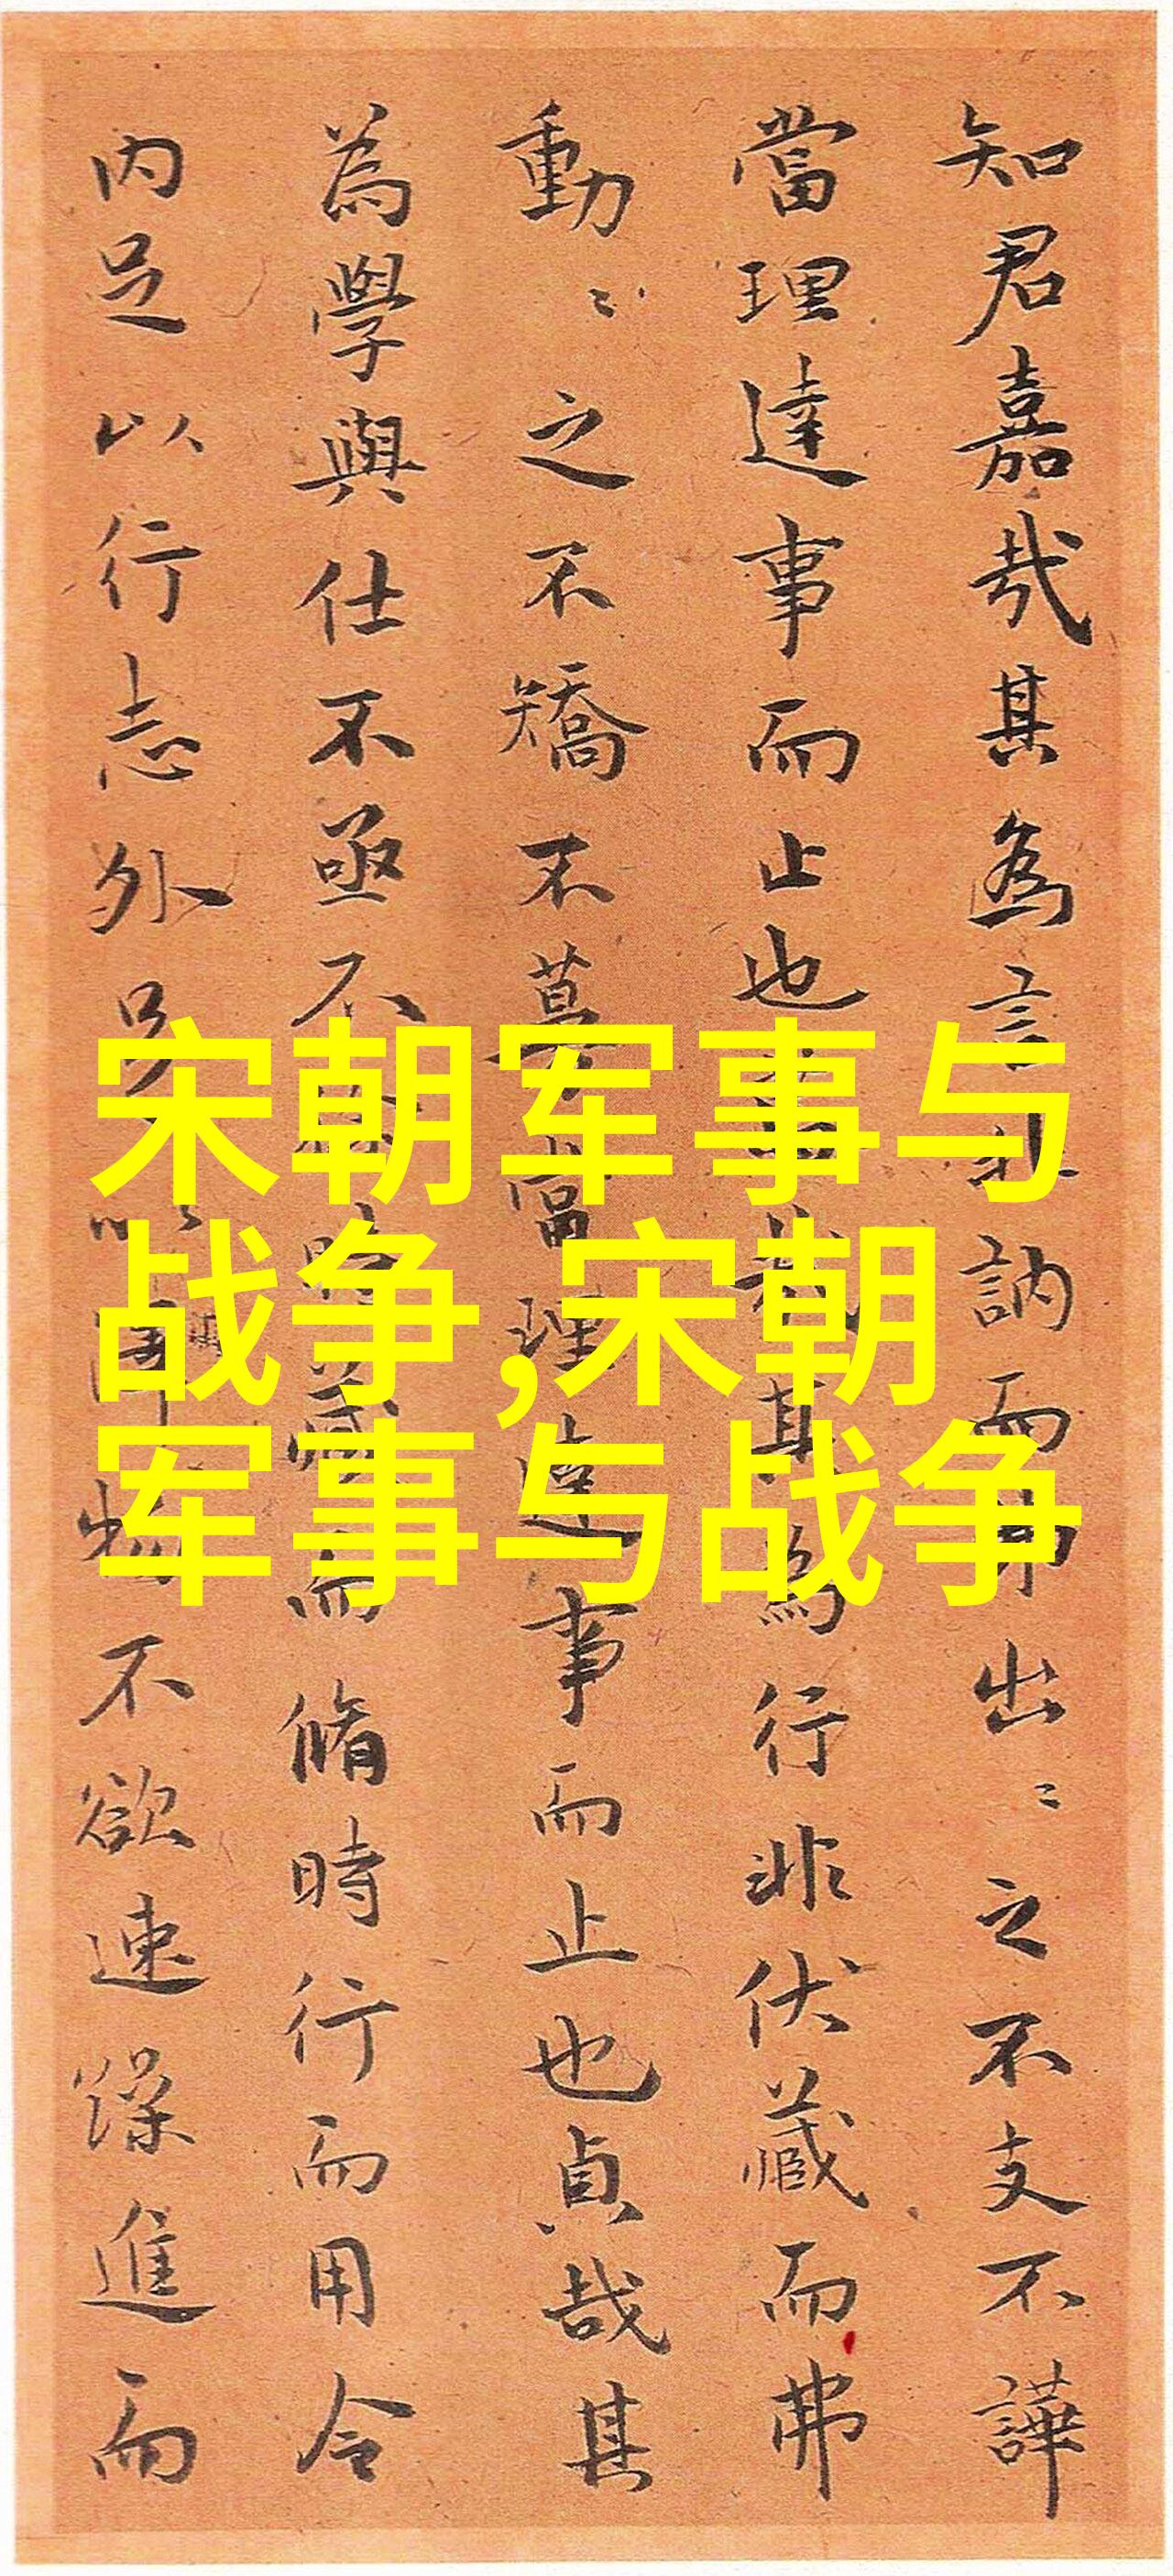 知君嘉哉其為言非訥而弗出〻之不支不譁
當理達事而止也哉其為行非伏藏而弗
動〻之不矯不當理達事而止也貞哉其
為學與仕不亟不時而脩時行而用令
内足以行志外足以物不欲速躁進而
宋朝军事与
战争,宋朝
军事与战争